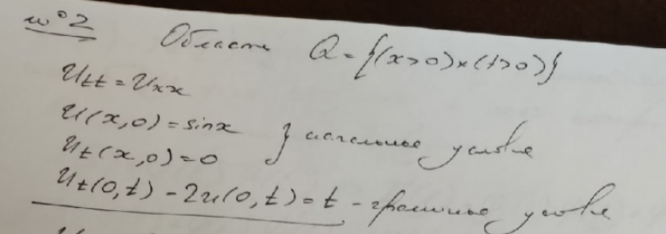 №2 Область Q={(x>0)×(t>0)}
Utt=Uxx
U(x,0)=sinx
Ut(x,0)=0 } начальные условия
Ut(0,t)-2u(0,t)=t - граничные условия